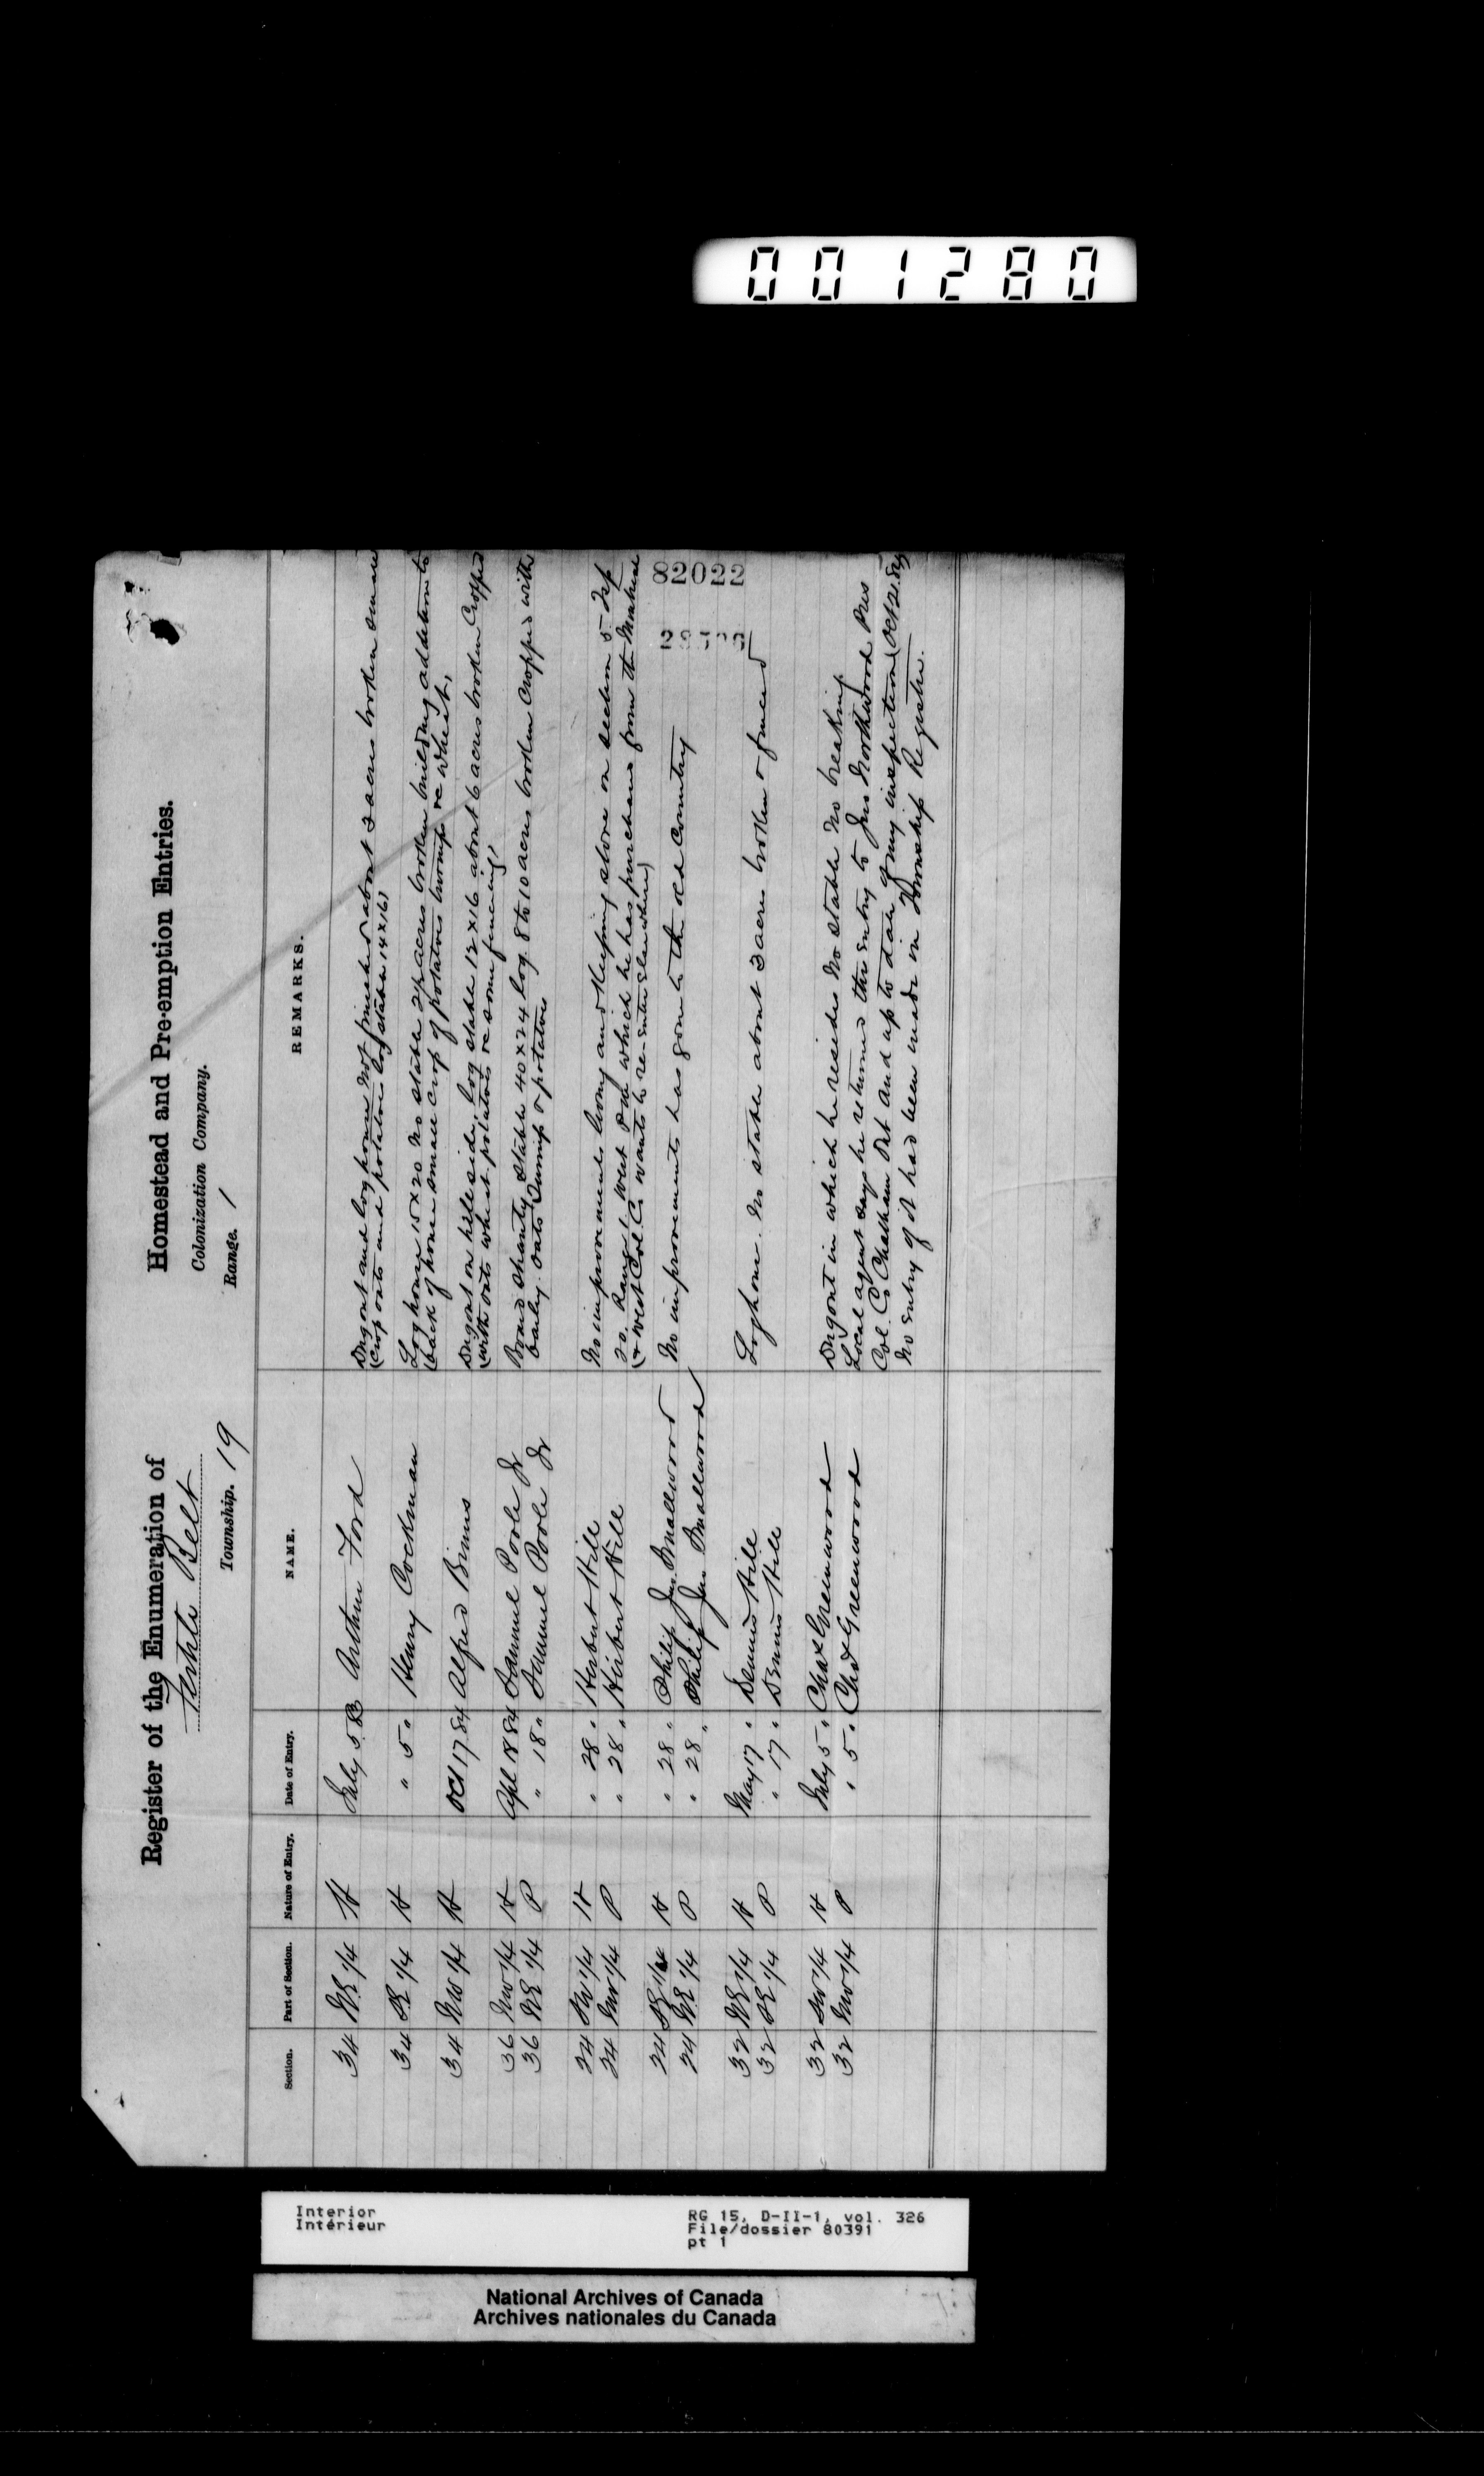 001280
Register of the Enumeration of Homestead and Pre-emption Entries.
Fertile Belt Colonization Company.
Township. 19 Range. 1
Section. Part of Section. Nature of Entry. Date of Entry. NAME. REMARKS.
34 NE 1/4 H July 5 Arthur Ford Dugout and log house not finished about 3 acres broken
(crop oats and potatoes log stable 14 x 16)
34 SE 1/4 H " 5 " Henry Cockman Log house 15 x 20 No stable acres broken building addition to
(back of house small crop of potatoes turnips wheat,
34 NW 1/4 H Oct 17 84 Alfred Binns Dugout on hillside, log stable 12 x 16 about 6 acres broken Cropped
(with oats wheat potatoes some fencing,
36 NW 1/4 H Apl 18 84 Samuel Poole Jr Board shanty stable 40 x 24 log 8 to 10 acres broken Cropped with
36 NE 1/4 P " 18 " Samuel Poole Jr barley oats turnips & potatoes
24 SW 1/4 H " 28 " Herbert Hill No improvements living and keeping store on section 5. Tsp
24 NW 1/4 P " 28 " Herbert Hill 20. Range 1 West 2nd which he has purchased from the Montreal
(& West Col. Co wants to re-enter elsewhere)
24 SE 1/4 H " 28 " Philip Jas Smallwood No improvements has gone to the old Country
24 NE 1/4 P " 28 " Philip Jas Smallwood
32 NE 1/4 H May 17 " Dennis Hill Log house. No stable about 3 acres broken & fenced
32 SE 1/4 P " 17 " Dennis Hill
32 SW 1/4 H July 5 " Chas Greenwood Dugout in which he resides No stable No breaking
32 NW 1/4 P " 5 " Chas Greenwood Local agent says he returned this entry to Jno Northwood Pres
Col. Co Chatham Ont and up to date of my inspection (Oct 21. 84)
No entry of it had been made in Township Register.
82022
Interior
Intérieur
RG 15, D-II-1, vol. 326
File/dossier 80391
pt 1
National Archives of Canada
Archives nationales du Canada